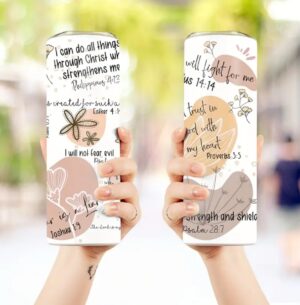 I can do all things
through Christ wh
strengthens me
Philippians 4:13
s created for such a
Esther 4
I will not fear evil
Psal
Joshua 1:9
will fight for me
us 14:14
trust in
ord with
my heart
Proverbs 3:5
strength and shield
Psalm 28:7